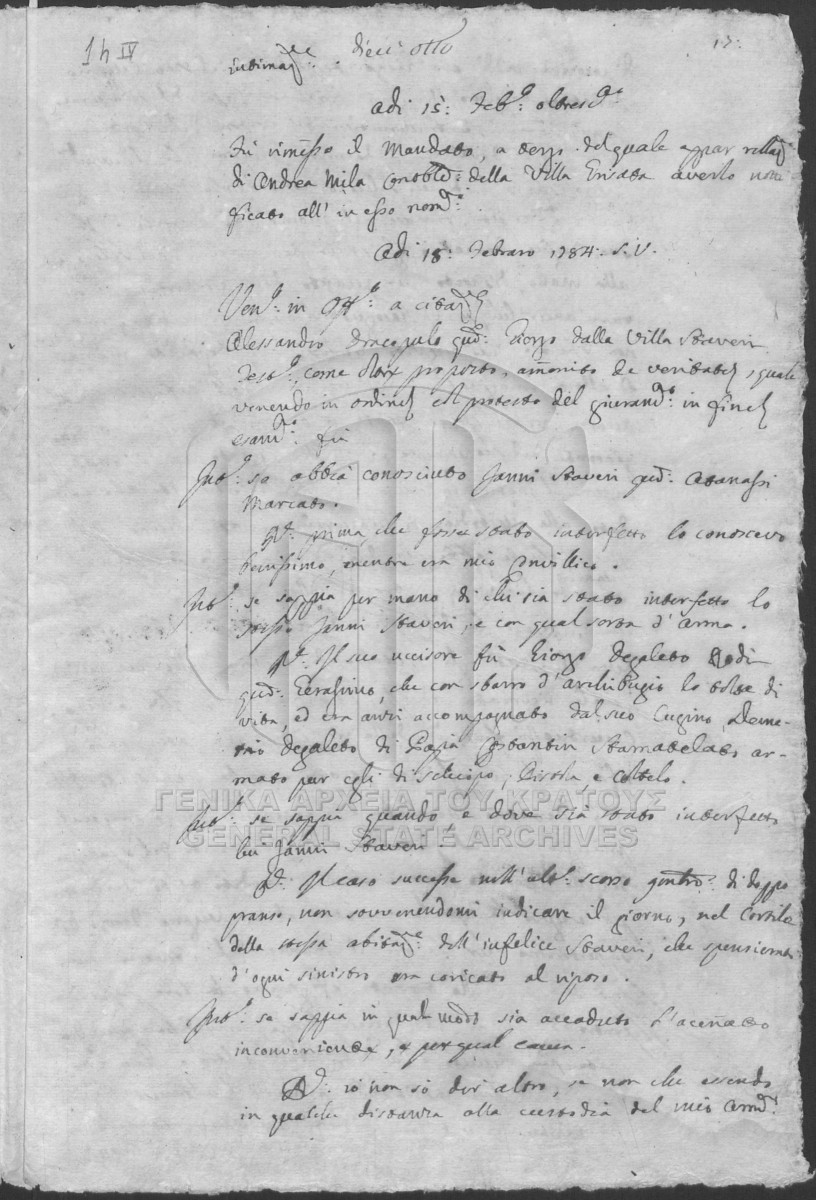 14 IV dieci otto 17:
intimaz.ne
Adi 15: Feb.o oltres.to
Fù rimesso il Mandato, a tergo del quale appar rellaz.e
di Andrea Mila Contble: della Villa Erisata averlo noti-
ficato all' in esso nom.to
Adi 18: Febraro 1784: S.V.
Ven.e in Off.o a citaz.e
Alessandro Dracopulo qud: Ziorzo dalla Villa Staveri
Test.o, come dirix proposto, amonito de veritate, quale
venendo in ordine col protesto del giuram.to in fine
esam.to fù
Int.o: se abbia conosciuto Janni Staveri qud: Atanassi
Marcato.
R.de: prima, che fosse stato interfetto lo conoscevo
benissimo, mentre era mio Convillico.
Int.o: se sappia per mano di chi sia stato interfetto lo
stesso Janni Staveri, e con qual sorta d' arma.
R.de: Il suo uccisore fù Ziorzo Degaleto Rodi
qud: Zerasimo, che con sbarro d' archibugio lo tolse di
vita, ed era anzi accompagnato dal suo Cugino Deme-
trio Degaleto di Papà Costantin Stamatelato ar-
mato pur egli di schiopo, Pistola, e Coltelo.
Int.o: se sappia quando, e dove sia stato interfetto
lui Janni Staveri
R.de: Il caso successe nell' alt.o scorso genaro: di doppo
pranso, non sovvenendomi indicare il giorno, nel Cortile
della stessa abitaz.ne dell' infelice Staveri, che spensierato
d' ogni sinistro era coricato al riposo.
Int.o: se sappia in qual modo sia accaduto l' acenato
inconveniente, e per qual causa.
R.de: io non sò dir altro, se non che essendo
in qualche distanza alla custodia del mio
ΓΕΝΙΚΑ ΑΡΧΕΙΑ ΤΟΥ ΚΡΑΤΟΥΣ
GENERAL STATE ARCHIVES